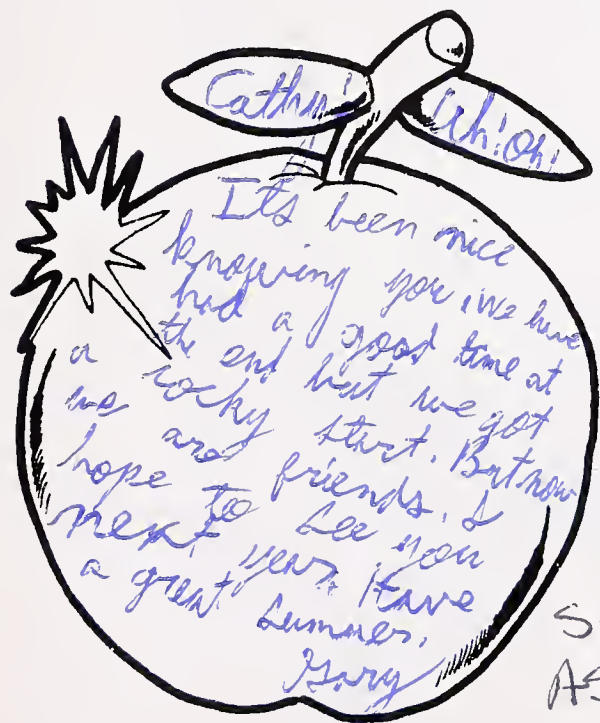 Cathy!
Uh! Oh!
Its been nice
knowing you, we have
had a good time at
the end but we got
a rocky start. But now
we are friends, I
hope to see you
next year. Have
a great summer.
Gary